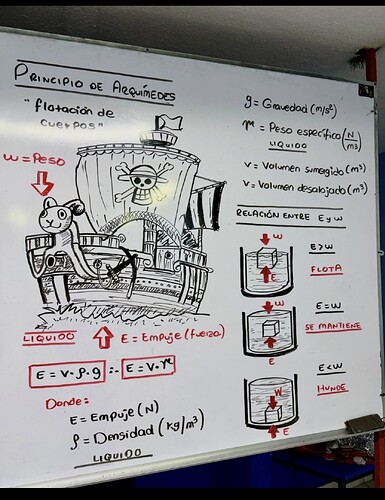 PRINCIPIO DE ARQUÍMEDES
"flotación de
cuerpos"
w = Peso
LIQUIDO
E = Empuje (fuerza)
E = V · ρ · g ∴ E = V · γ
Donde:
E = Empuje (N)
ρ = Densidad (kg/m³)
LIQUIDO
g = Gravedad (m/s²)
γ = Peso específico (N/m³)
LIQUIDO
v = Volumen sumergido (m³)
v = Volumen desalojado (m³)
RELACIÓN ENTRE E y W
W
E
E > W
FLOTA
W
E
E = W
SE MANTIENE
W
E
E < W
HUNDE